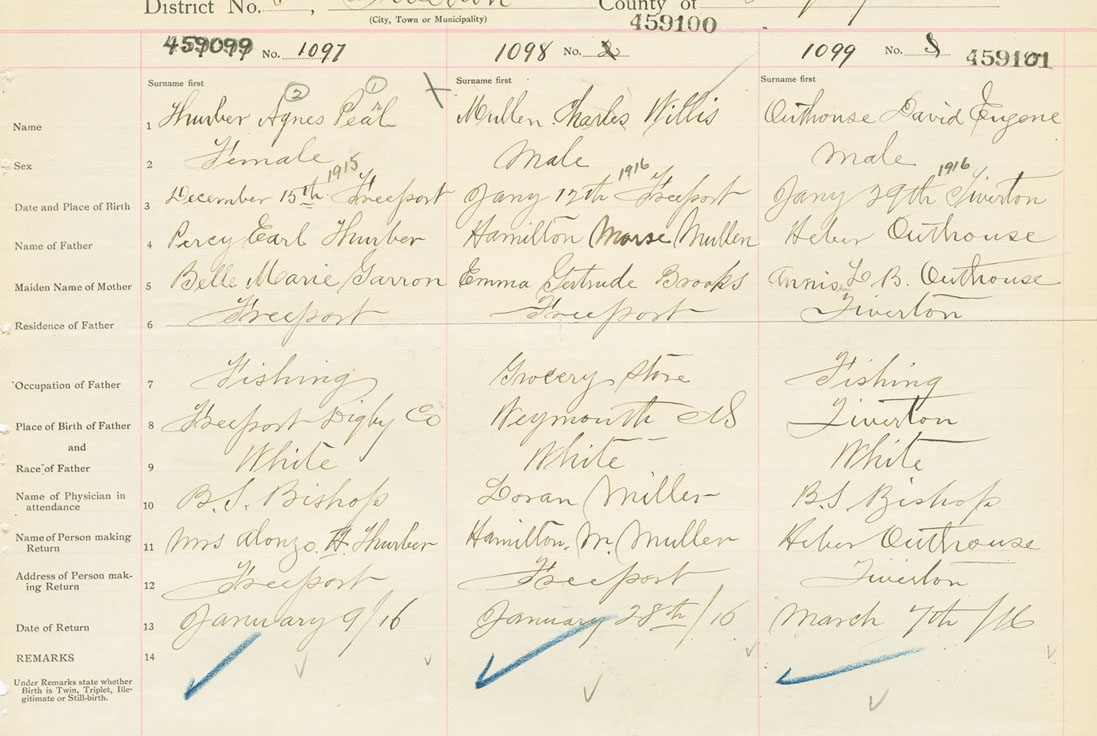 District No. , County of
(City, Town or Municipality)
459100
459099 No. 1097 1098 No. 2 1099 No. 3 459101
Surname first Surname first Surname first
2 1
Name 1 Thurber Agnes Pearl Mullen Charles Willis Outhouse David Eugene
Sex 2 Female Male Male
1915 1916 1916
Date and Place of Birth 3 December 15th Freeport Jany 12th Freeport Jany 29th Tiverton
Name of Father 4 Percy Earl Thurber Hamilton Morse Mullen Heber Outhouse
Maiden Name of Mother 5 Belle Marie Garron Emma Gertrude Brooks Annis L. B. Outhouse
Residence of Father 6 Freeport Freeport Tiverton
Occupation of Father 7 Fishing Grocery Store Fishing
Place of Birth of Father 8 Freeport Digby Co Weymouth NS Tiverton
and
Race of Father 9 White White White
Name of Physician in
attendance 10 B.S. Bishop Loran Miller B.S Bishop
Name of Person making
Return 11 Mrs Alonzo. H. Thurber Hamilton. M. Mullen Heber Outhouse
Address of Person mak-
ing Return 12 Freeport Freeport Tiverton
Date of Return 13 January 9/16 January 28th/16 March 7th /16
REMARKS 14
Under Remarks state whether
Birth is Twin, Triplet, Ille-
gitimate or Still-birth.